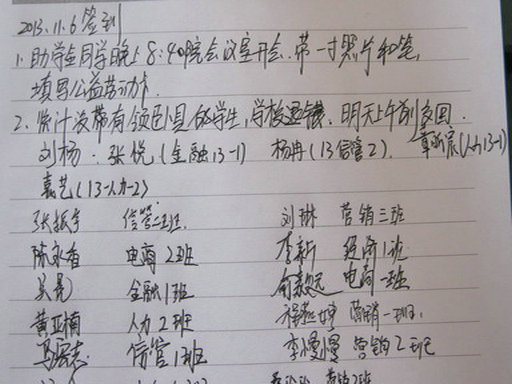 2013.11.6 签到
1. 助学生同学晚上8:40院会议室开会.带一寸照片和笔,
填写公益劳动卡.
2. 统计没带有领卧具的学生,学校退钱,明天上午到
刘杨. 张悦(金融13-1) 杨冉(13信管2). (人力13-1)
嘉艺(13-人力-2)
信管二班. 刘琳 营销三班
陈永香 电商2班 李新 经济1班
吴亮 金融1班 电商一班
黄亚楠 人力2班 营销一班.
马宏志 信管1班 李慢慢 营销2班